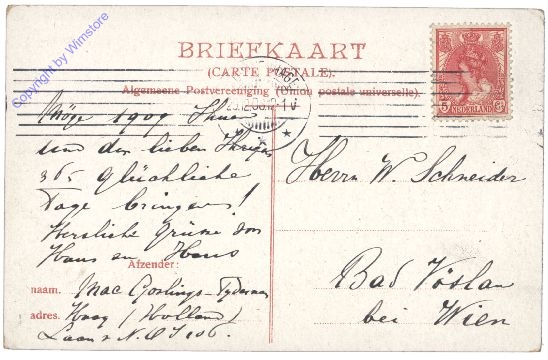 Copyright by Wimstore
BRIEFKAART
(CARTE POSTALE).
Algemeene Postvereeniging (Union postale universelle).
5
NEDERLAND
Möge 1909 Ihnen
und den lieben Ihrigen
365 glückliche
Tage bringen!
Herzliche Grüsse von
Haus zu Haus
Afzender:
naam. Mac Goslings-
adres. Haag (Holland)
Laan v. N.O.I 106.
Herrn W. Schneider
Bad Vöslau
bei Wien